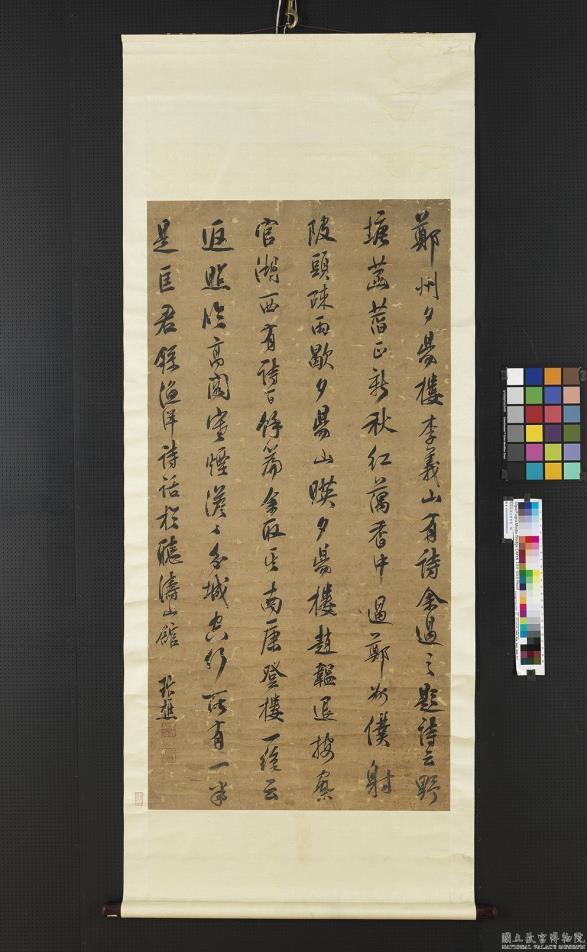 鄭州夕陽樓李義山有詩余過之題詩云野
塘菡萏正新秋紅藕香中過鄭州僕射
陂頭疎雨歇夕陽山映夕陽樓趙韞退按察
官湖西有詩百餘篇余取其南康登樓一絕云
返照臨高閣寒煙澹〻城行所有一半
是匡君錄漁洋詩話於聽濤山館 張
國立故宮博物院
NATIONAL PALACE MUSEUM